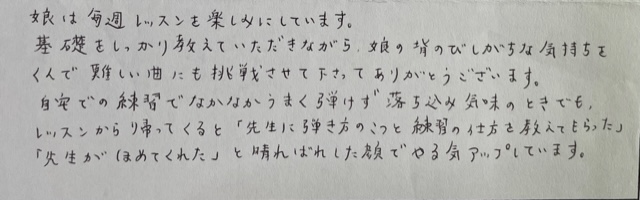 娘は毎週レッスンを楽しみにしています。
基礎をしっかり教えていただきながら、娘の背のびしがちな気持ちを
くんで難しい曲にも挑戦させて下さってありがとうございます。
自宅での練習でなかなかうまく弾けず落ち込み気味のときでも、
レッスンから帰ってくると「先生に弾き方のこつと練習の仕方を教えてもらった」
「先生がほめてくれた」と晴ればれした顔でやる気アップしています。